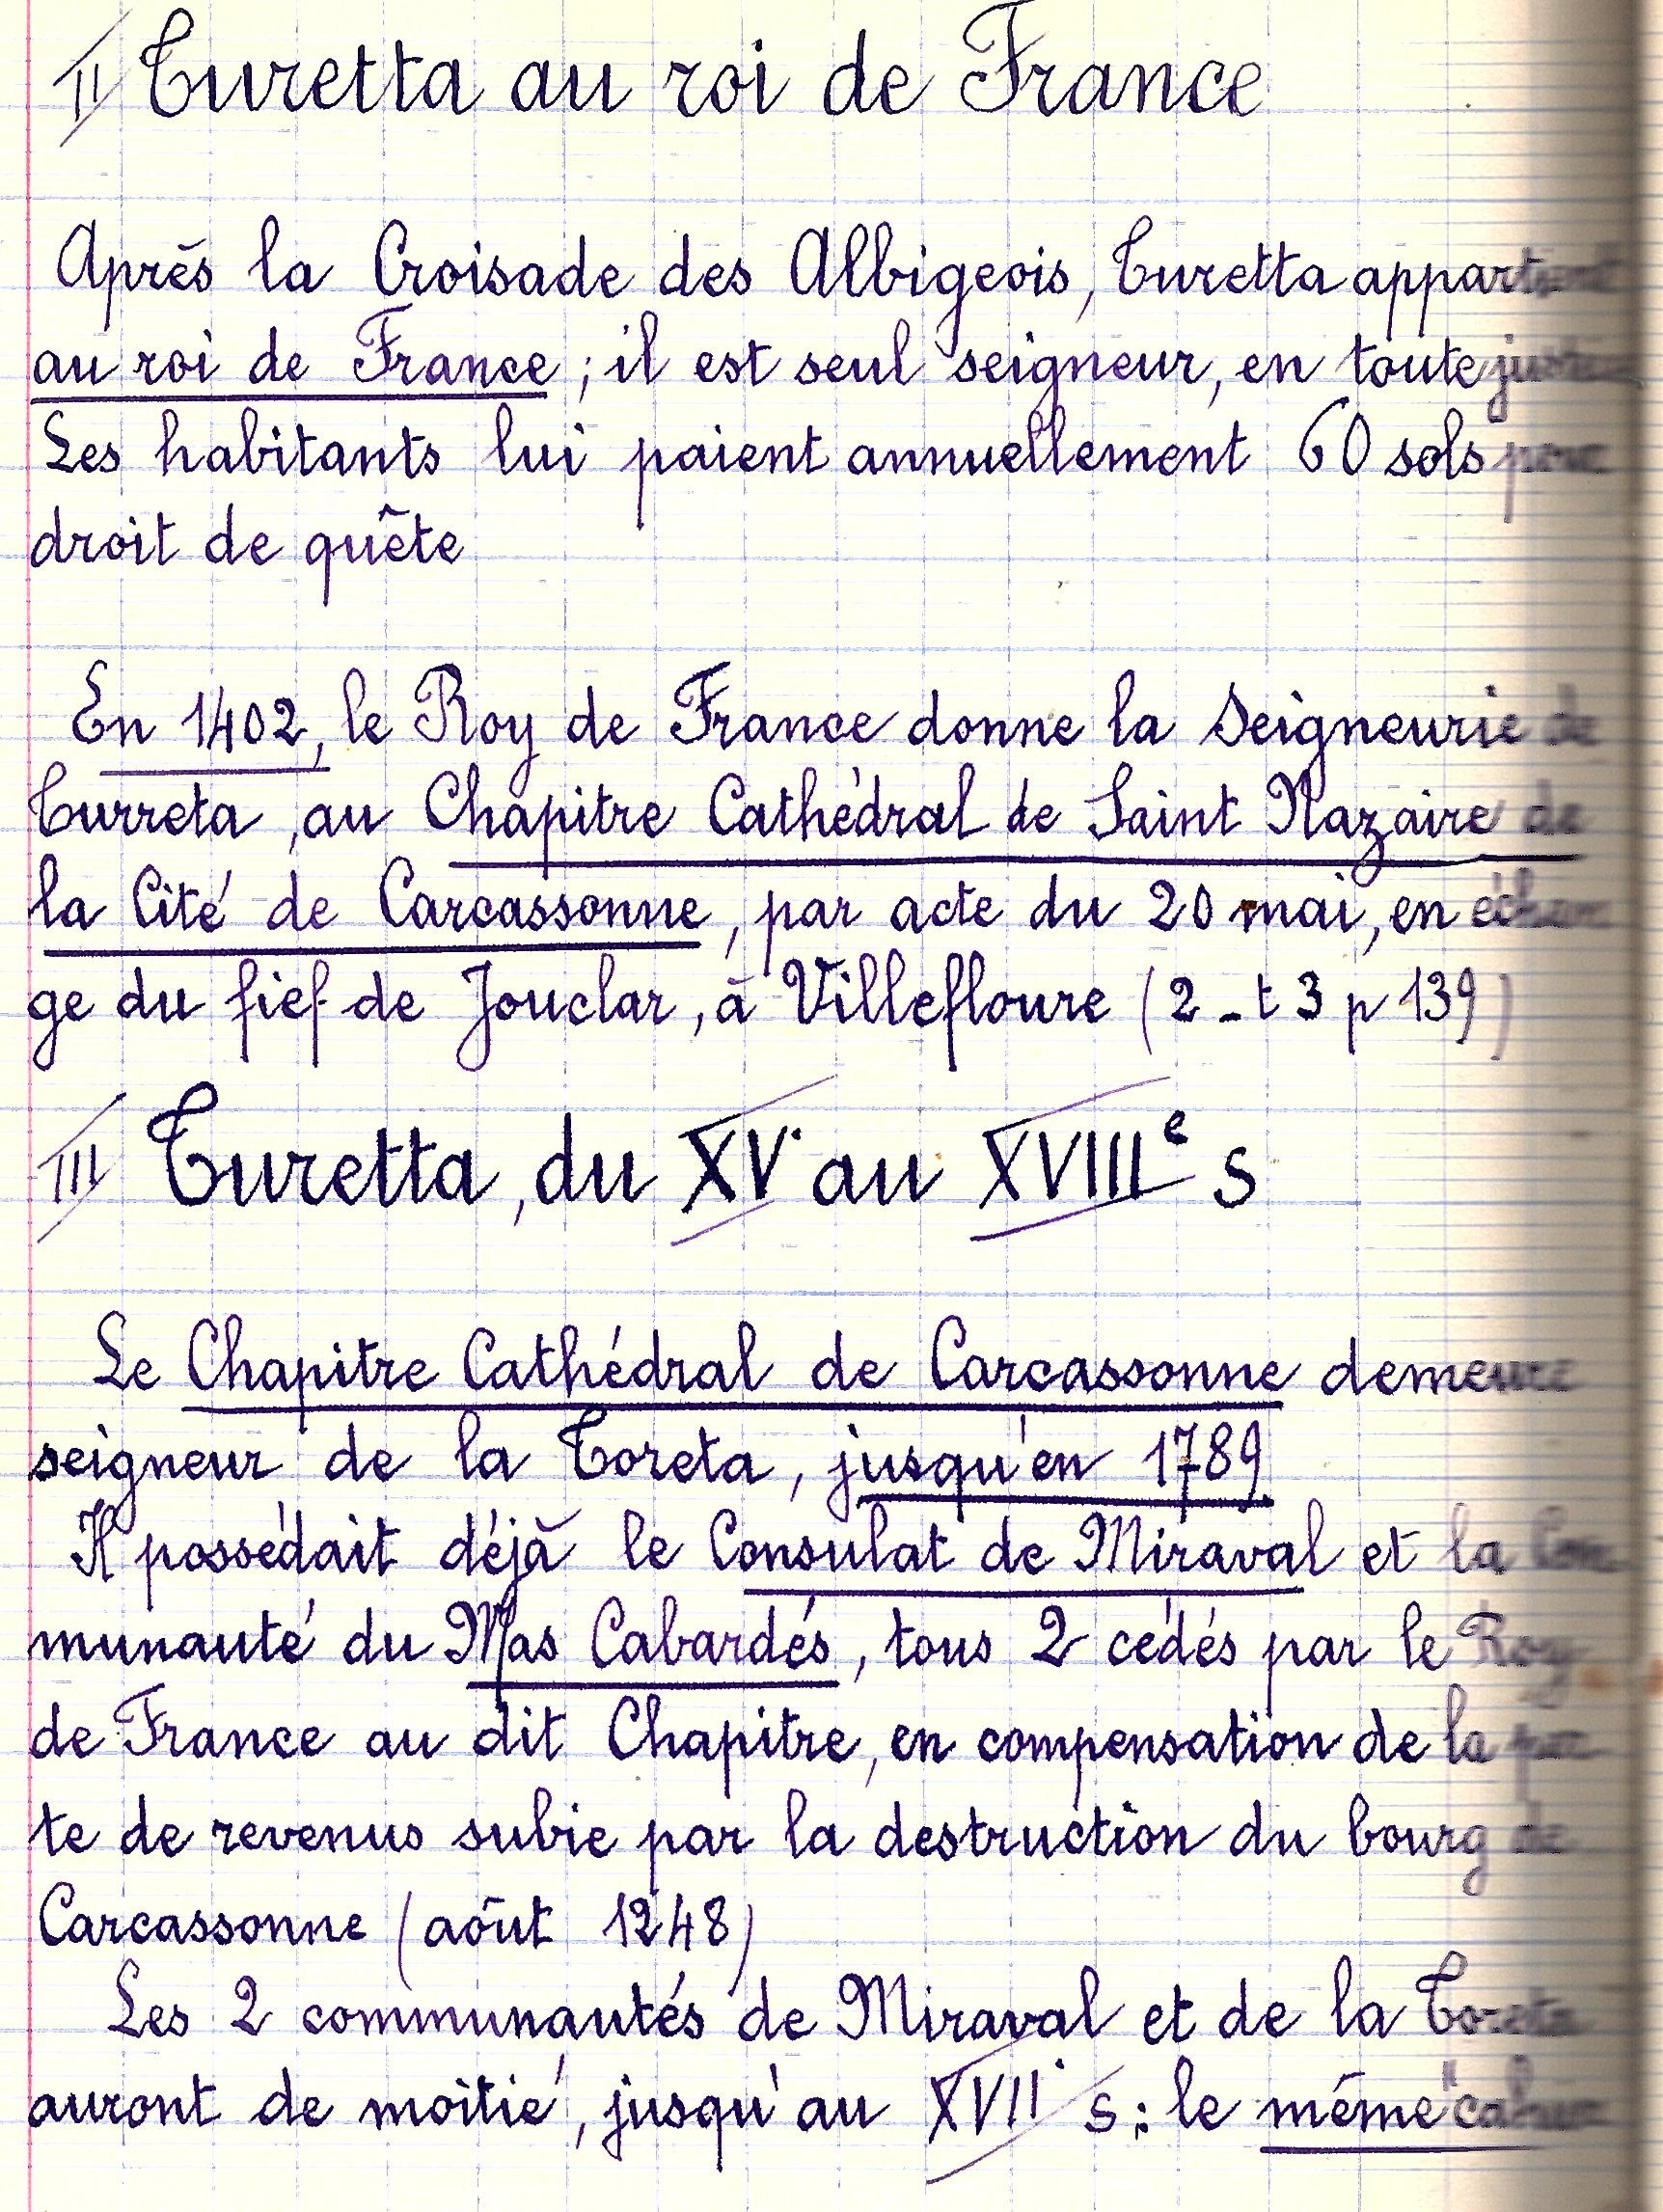 II Turetta au roi de France
Après la Croisade des Albigeois, Turetta appartient
au roi de France ; il est seul seigneur, en toute justice
Les habitants lui paient annuellement 60 sols pour
droit de quête
En 1402, le Roy de France donne la Seigneurie de
Turreta, au Chapitre Cathédral de Saint Nazaire de
la Cité de Carcassonne, par acte du 20 mai, en échan
ge du fief de Jouclar, à Villefloure (2 - t 3 p 139)
III Turetta, du XV au XVIIIe s
Le Chapitre Cathédral de Carcassonne demeure
seigneur de la Toreta, jusqu'en 1789.
Il possédait déjà le Consulat de Miraval et la Com
munauté du Mas Cabardés, tous 2 cédés par le Roy
de France au dit Chapitre, en compensation de la per
te de revenus subie par la destruction du bourg de
Carcassonne (août 1248)
Les 2 communautés de Miraval et de la Toreta
auront de moitié, jusqu'au XVII s : le même